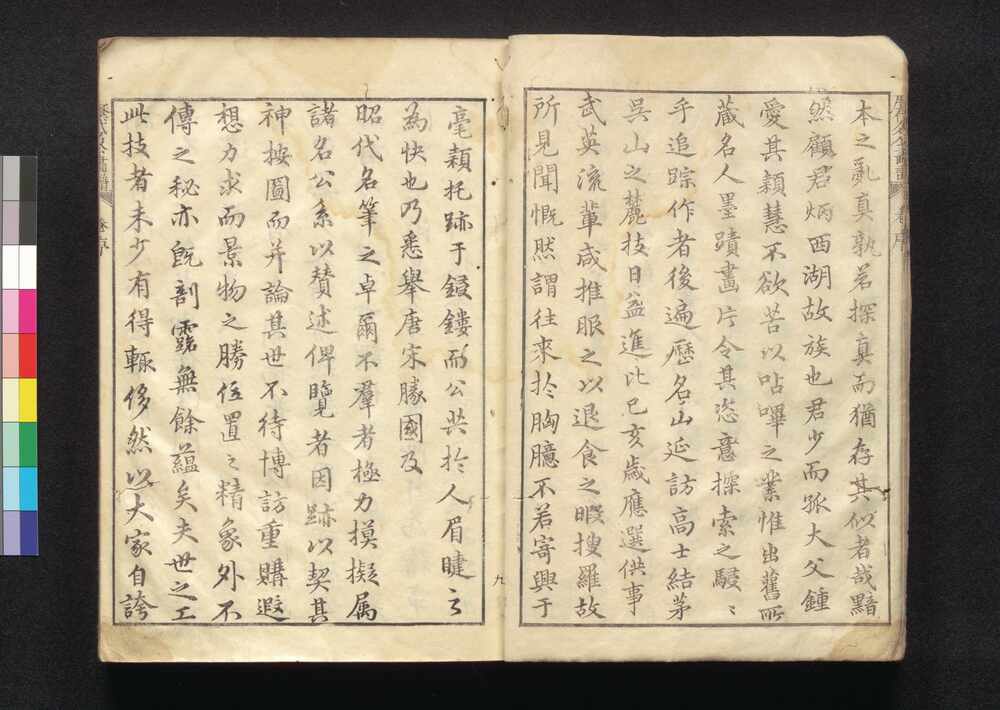 本之亂真孰若探真而猶存其似者哉黯
然顧君炳西湖故族也君少而孤大父鍾
愛其穎慧不欲苦以呫嗶之業惟出舊所
藏名人墨蹟畫片令其恣意探索之駸〻
乎追踪作者後遍歷名山延訪高士結茅
吳山之麓技日益進比己亥歲應選供事
武英流輩咸推服之以退食之暇搜羅故
所見聞慨然謂往來於胸臆不若寄興于
毫穎托跡于鋟鏤而公共於人眉睫云
為快也乃悉舉唐宋勝國及
昭代名筆之卓爾不羣者極力摸擬属
諸名公系以贊述俾覽者因跡以契其
神按圖而并論其世不待博訪重購遐
想力求而景物之勝位置之精象外不
傳之秘亦既剖露無餘蘊矣夫世之工
此技者未少有得輒侈然以大家自誇
九